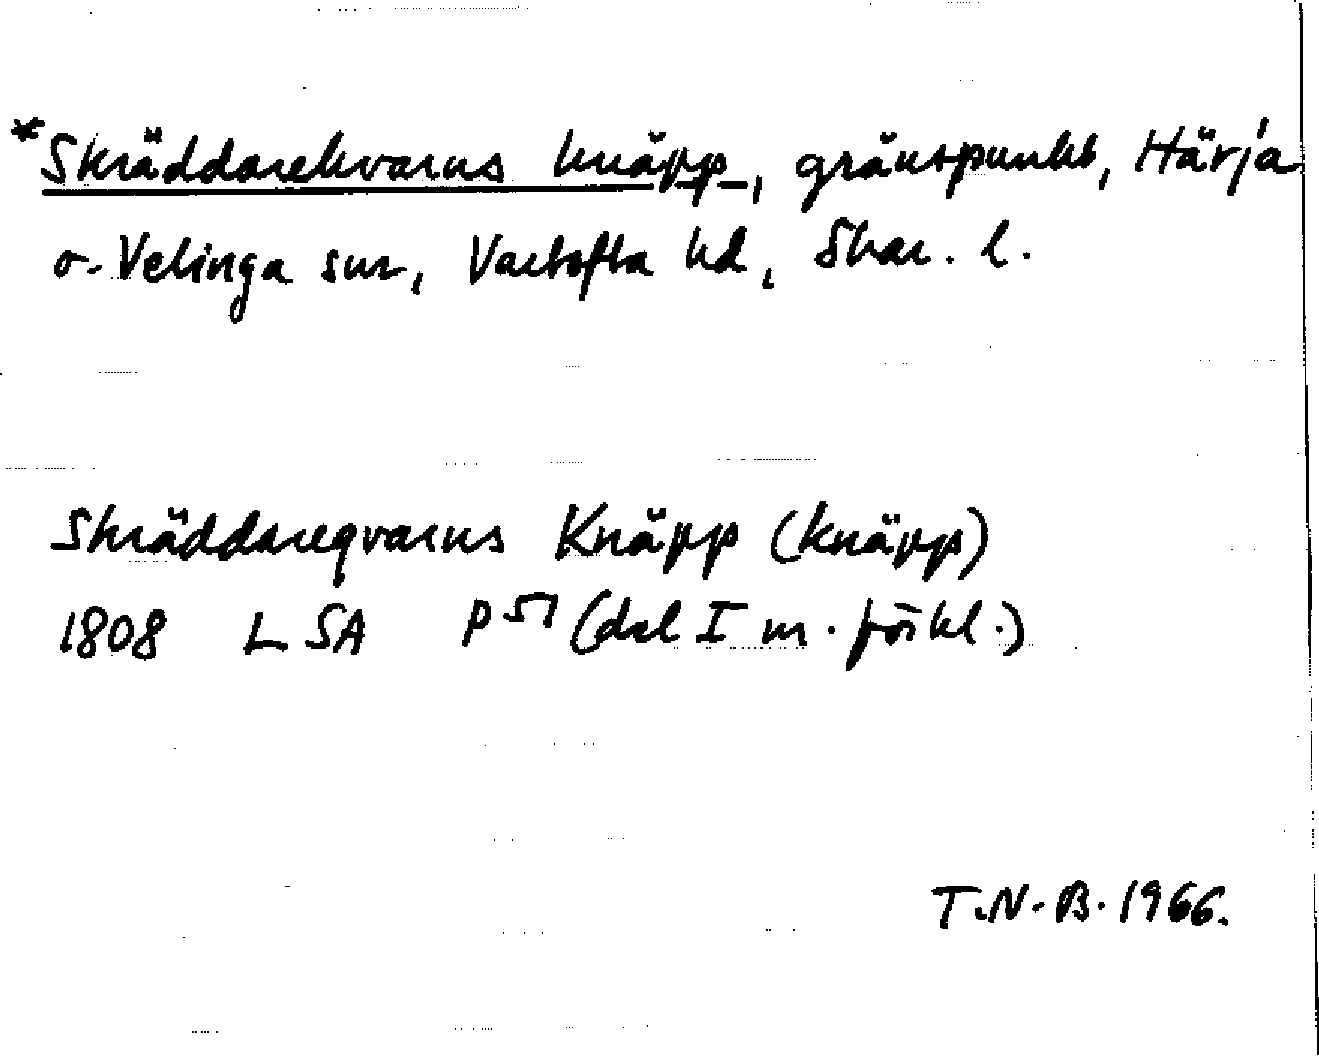 *Skräddarekvarns knäpp, gränspunkt, Härja
o. Velinga snr, Vartofta hd, Skar. l.
Skräddareqvarns Knäpp (knäpp)
1808 LSA P 57 (del I m. förkl.)
T.N.B. 1966.